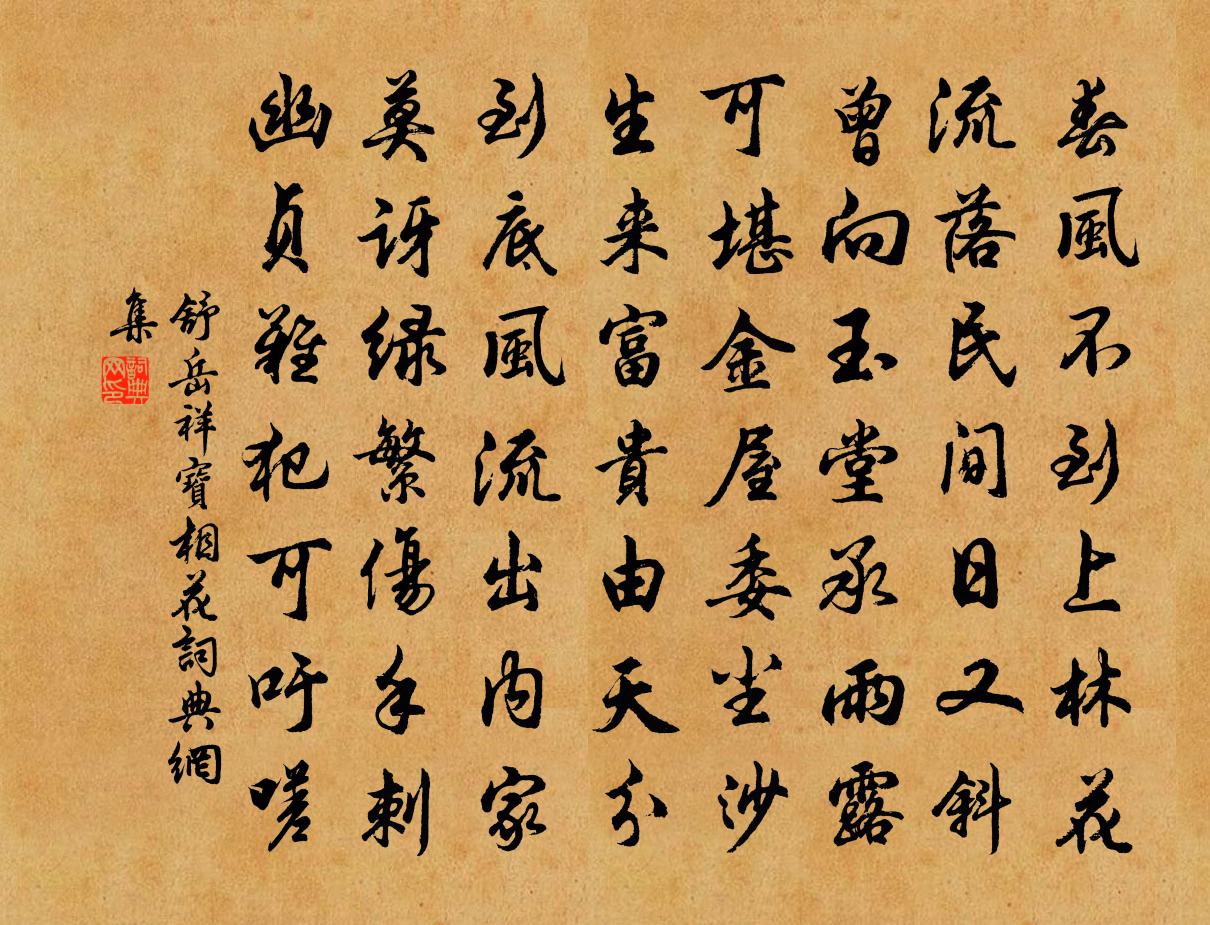 春風不到上林花
流落民间日又斜
曾向玉堂承雨露
可堪金屋委尘沙
生来富貴由天分
到底風流出内家
莫訝绿繁傷手刺
幽貞難犯可吁嗟
舒岳祥寶相花詞典網
集
詞典
网印